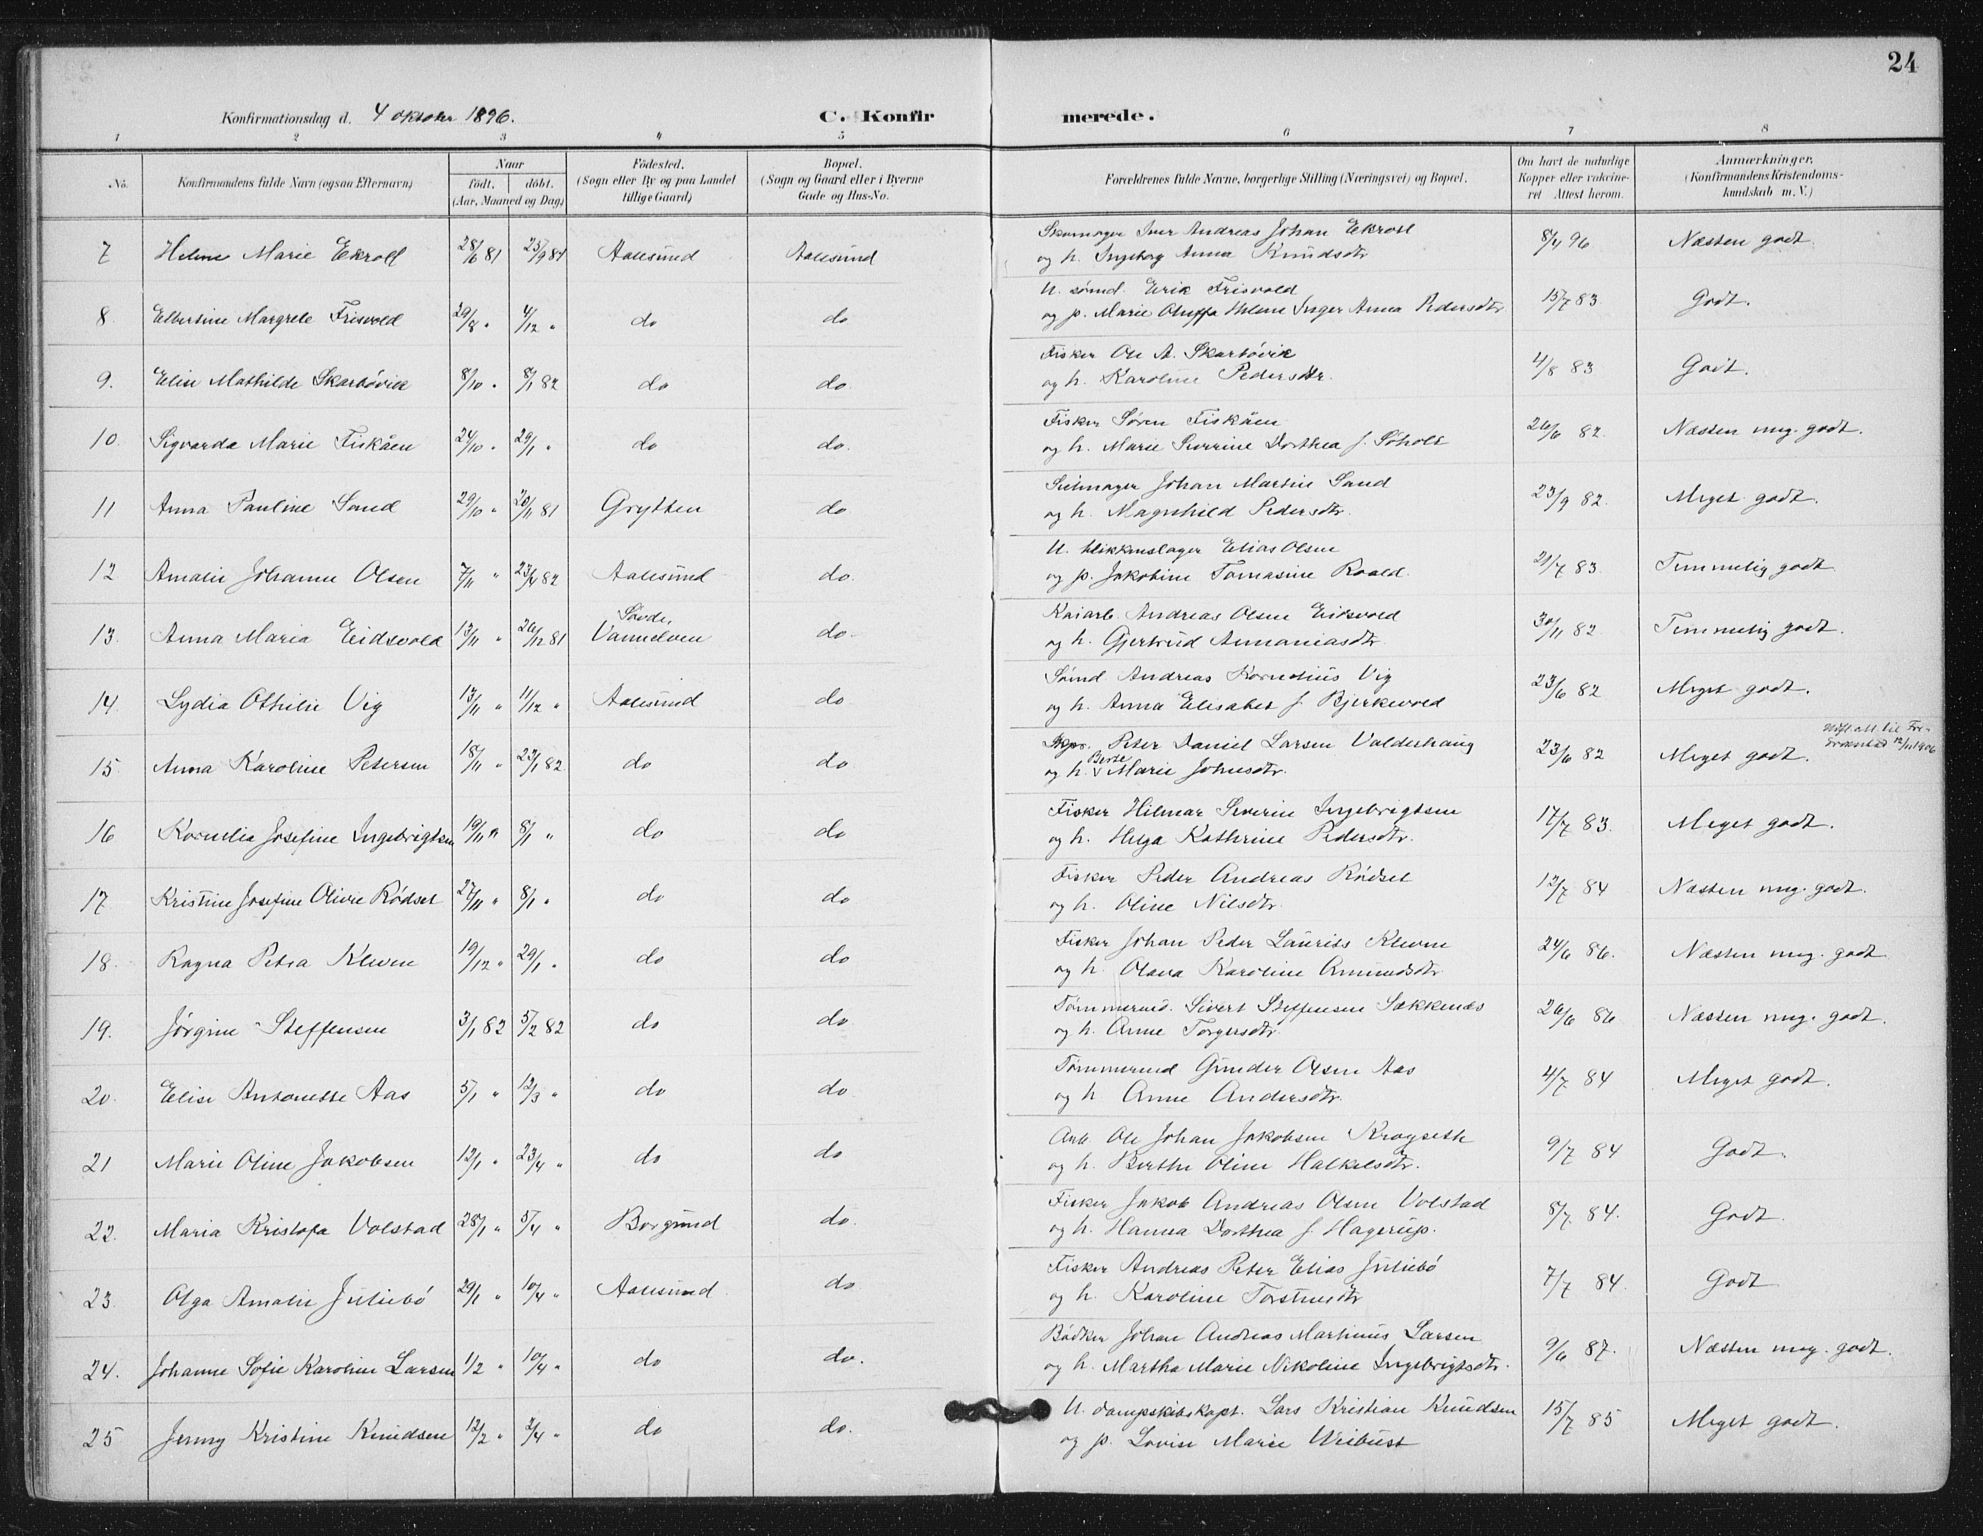 24
Konfirmationsdag d. 4 oktober 1896.
C. Konfirmerede.
1 2 3 4 5 6 7 8
No. Konfirmandens fulde Navn (ogsaa Efternavn) Naar født. døbt. (Aar, Maaned og Dag) Fødested. (Sogn eller By og paa Landet tillige Gaard) Bopæl. (Sogn og Gaard eller i Byerne Gade og Hus-No. Forældrenes fulde Navne, borgerlige Stilling (Næringsvei) og Bopæl. Om havt de naturlige Kopper eller vakcineret Attest herom. Anmærkninger, (Konfirmandens Kristendomskundskab m. V.)
7 Helene Marie Ekroll 28/6 81 25/9 81 Aalesund Aalesund Skomager Iver Andreas Johan Ekroll 8/4 96 Næsten godt.
og h. Ingeborg Anna Knudsdtr
8. Elbertine Margrete Frisvold 29/8 " 4/12 " do do U. sømd. Erik Frisvold 15/7 83 Godt.
og p. Marie Oluffa Helene Inger Anna Pedersdtr
9. Elise Mathilde Skarbövik 8/10 " 8/1 82 do do. Fisker Ole A. Skarbövik 4/8 83 Godt.
og h. Karoline Pedersdtr.
10. Sigvarda Marie Fiskåen 24/10 " 29/1 " do do. Fisker Søren Fiskåen 26/6 82. Næsten meg. godt.
og h. Marie Severine Dorthea f. Søholt
11 Anna Pauline Sand 29/10 " 20/11 81 Grytten do Seilmager Johan Martin Sand 23/9 82. Meget godt.
og h. Magnhild Pedersdtr.
12 Amalie Johanne Olsen 7/11 " 23/4 82 Aalesund do. U. blikkenslager Elias Olsen 21/7 83. Temmelig godt
og p. Jakobine Tomasine Roald.
13. Anna Maria Eidsvold 13/11 " 26/12 81 Søvde, Vannelven do. Kaiarb. Andreas Olsen Eidsvold 30/11 82 Temmelig godt.
og h. Gjertrud Annaniasdtr
14. Lydia Othilie Vig 13/11 " 11/12 " Aalesund do Sømd. Andreas Kornelius Vig 23/6 82 Meget godt.
og h. Anna Elisabet f. Bjerkevold
15. Anna Karoline Petersen 18/11 " 22/1 82. do do Skpr. Peter Daniel Larsen Valderhaug 23/6 82 Meget godt.
og h. Berte Marie Johnsdtr.
16 Kornelia Josefine Ingebrigtsen 19/11 " 8/1 " do do Fisker Hilmar Severin Ingebrigtsen 17/7 83. Meget godt.
og h. Helga Kathrine Pedersdtr.
17. Kristine Josefine Olivie Rødset 27/11 " 8/1 " do do Fisker Peder Andreas Rødset 12/7 84 Næsten meg. godt.
og h. Oline Nilsdtr.
18. Ragna Petra Kleven 19/12 " 29/1 " do do Fisker Johan Peder Laurits Kleven 24/6 86. Næsten meg. godt
og h. Olava Karoline Amundsdtr.
19. Jørgine Steffensen 3/1 82 5/2 82 do do. Tømmermd. Sivert Steffensen Sækkenæs 26/6 86. Næsten meg. godt.
og h. Anne Torgersdtr.
20. Elise Antonette Aas 5/1 " 12/3 " do do. Tømmermd Gunder Olsen Aas 4/7 84 Meget godt.
og h Anne Andersdtr.
21 Marie Oline Jakobsen 12/1 " 23/4 " do do Arb. Ole Johan Jakobsen Krogseth 9/7 84 Godt.
og h. Berthe Oline Halkelsdtr.
22. Maria Kristofa Volstad 28/1 " 5/4 " Borgund do. Fisker Jakob Andreas Olsen Volstad 8/7 84. Godt.
og h. Hanna Dorthea f. Hagerup.
23. Olga Amalie Juliebö 29/1 " 10/4 " Aalesund. do Fisker Andreas Peter Elias Juliebö 7/7 84. Godt
og h. Karoline Torstensdtr
24. Johanne Sofie Karoline Larsen 1/2 " 10/4 " do do. Bødker Johan Andreas Martinus Larsen 9/6 87. Næsten meg. godt.
og h. Martha Marie Nikoline Ingebrigtsdtr.
25 Jenny Kristine Knudsen 12/2 " 2/4 " do do. U. dampskibskapt. Lars Kristian Knudsen 15/7 85 Meget godt.
og p. Lovise Marie Weibust